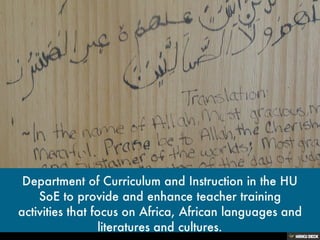 غير
ولا الضالين
Translation:
~In the name of Allah, Most gracious, m
Merciful. Praise be to Allah, the Cherish
and Sustainer of the worlds; Most gra
of the day of
Department of Curriculum and Instruction in the HU
SoE to provide and enhance teacher training
activities that focus on Africa, African languages and
literatures and cultures.
HAIKU DECK